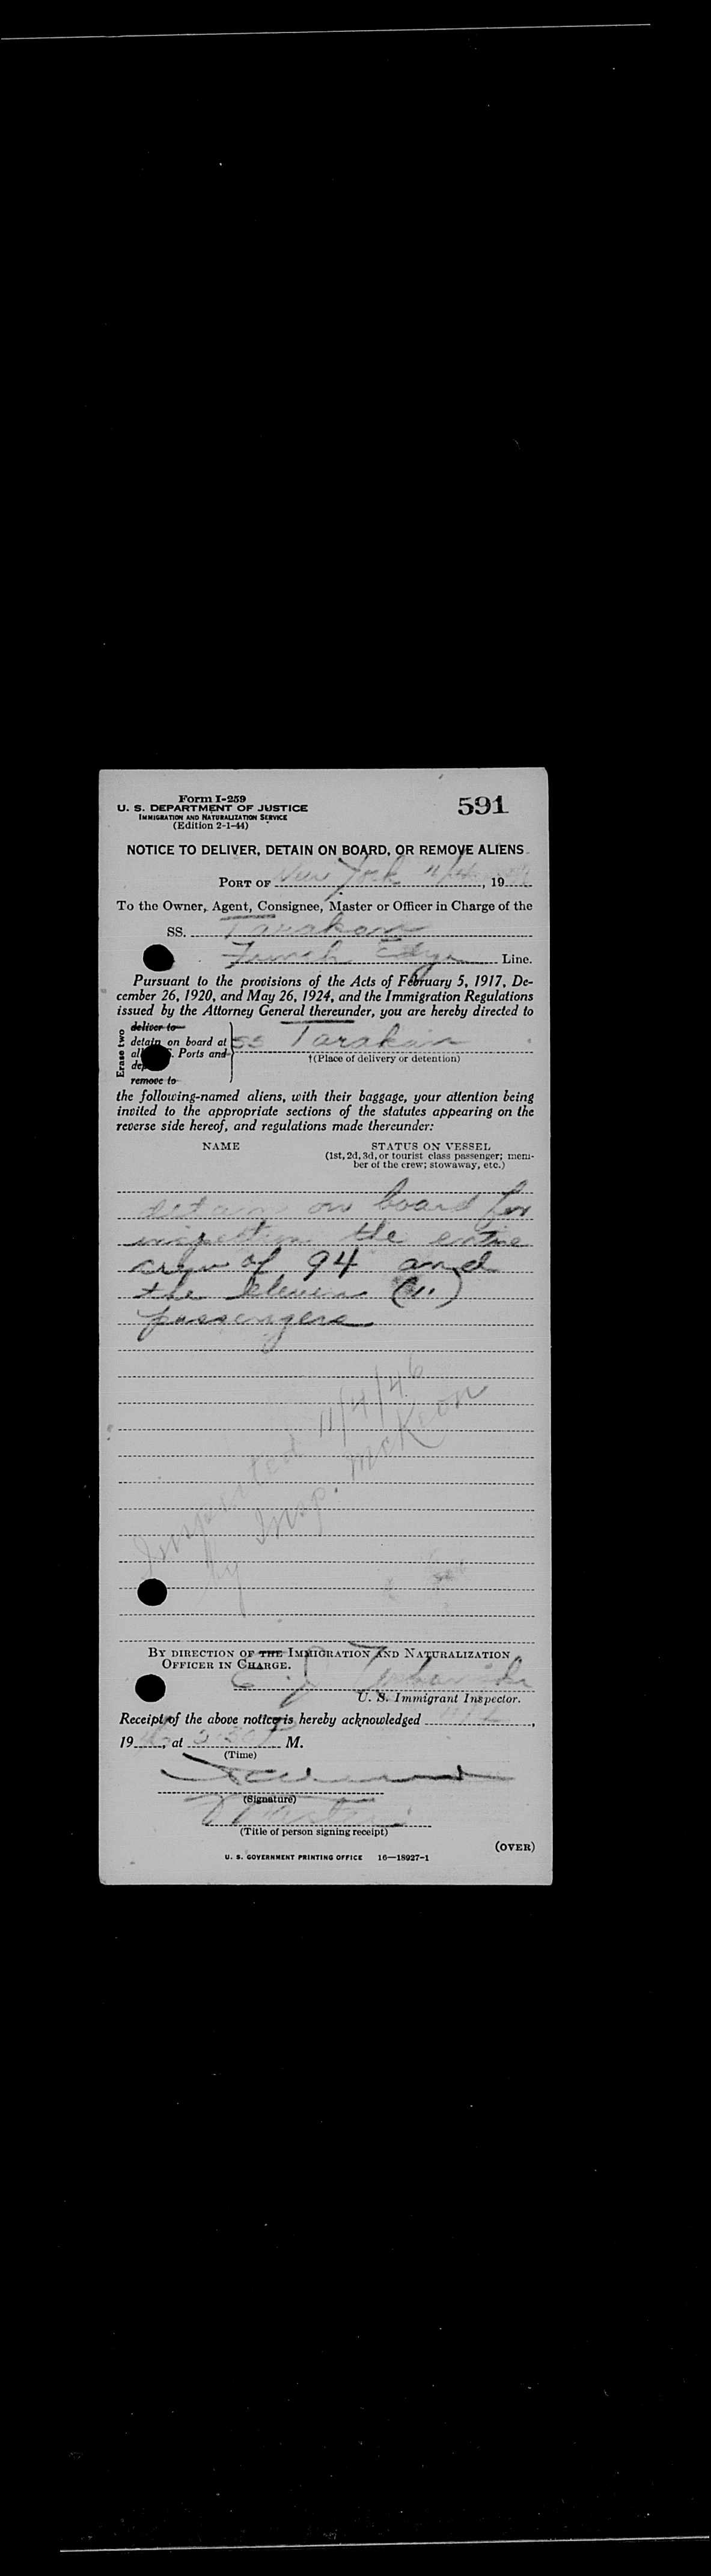 Form I-259
U. S. DEPARTMENT OF JUSTICE
IMMIGRATION AND NATURALIZATION SERVICE
(Edition 2-1-44)
591
NOTICE TO DELIVER, DETAIN ON BOARD, OR REMOVE ALIENS
PORT OF New York 11/4, 19
To the Owner, Agent, Consignee, Master or Officer in Charge of the
SS. Tarakan
Funch Edye Line.
Pursuant to the provisions of the Acts of February 5, 1917, De-
cember 26, 1920, and May 26, 1924, and the Immigration Regulations
issued by the Attorney General thereunder, you are hereby directed to
Erase two
deliver to
detain on board at
Ports and
remove to
SS Tarakan
†(Place of delivery or detention)
the following-named aliens, with their baggage, your attention being
invited to the appropriate sections of the statutes appearing on the
reverse side hereof, and regulations made thereunder:
NAME
STATUS ON VESSEL
(1st, 2d, 3d, or tourist class passenger; mem-
ber of the crew; stowaway, etc.)
detain on board for
inspection the entire
crew of 94 and
the eleven (11)
passengers
Inspected 11/4/46
by Insp. McKeon
BY DIRECTION OF THE IMMIGRATION AND NATURALIZATION
OFFICER IN CHARGE.
U. S. Immigrant Inspector.
Receipt of the above notice is hereby acknowledged 11/4,
19 46, at M.
(Time)
(Signature)
Master
(Title of person signing receipt)
(OVER)
U. S. GOVERNMENT PRINTING OFFICE 16—18927-1